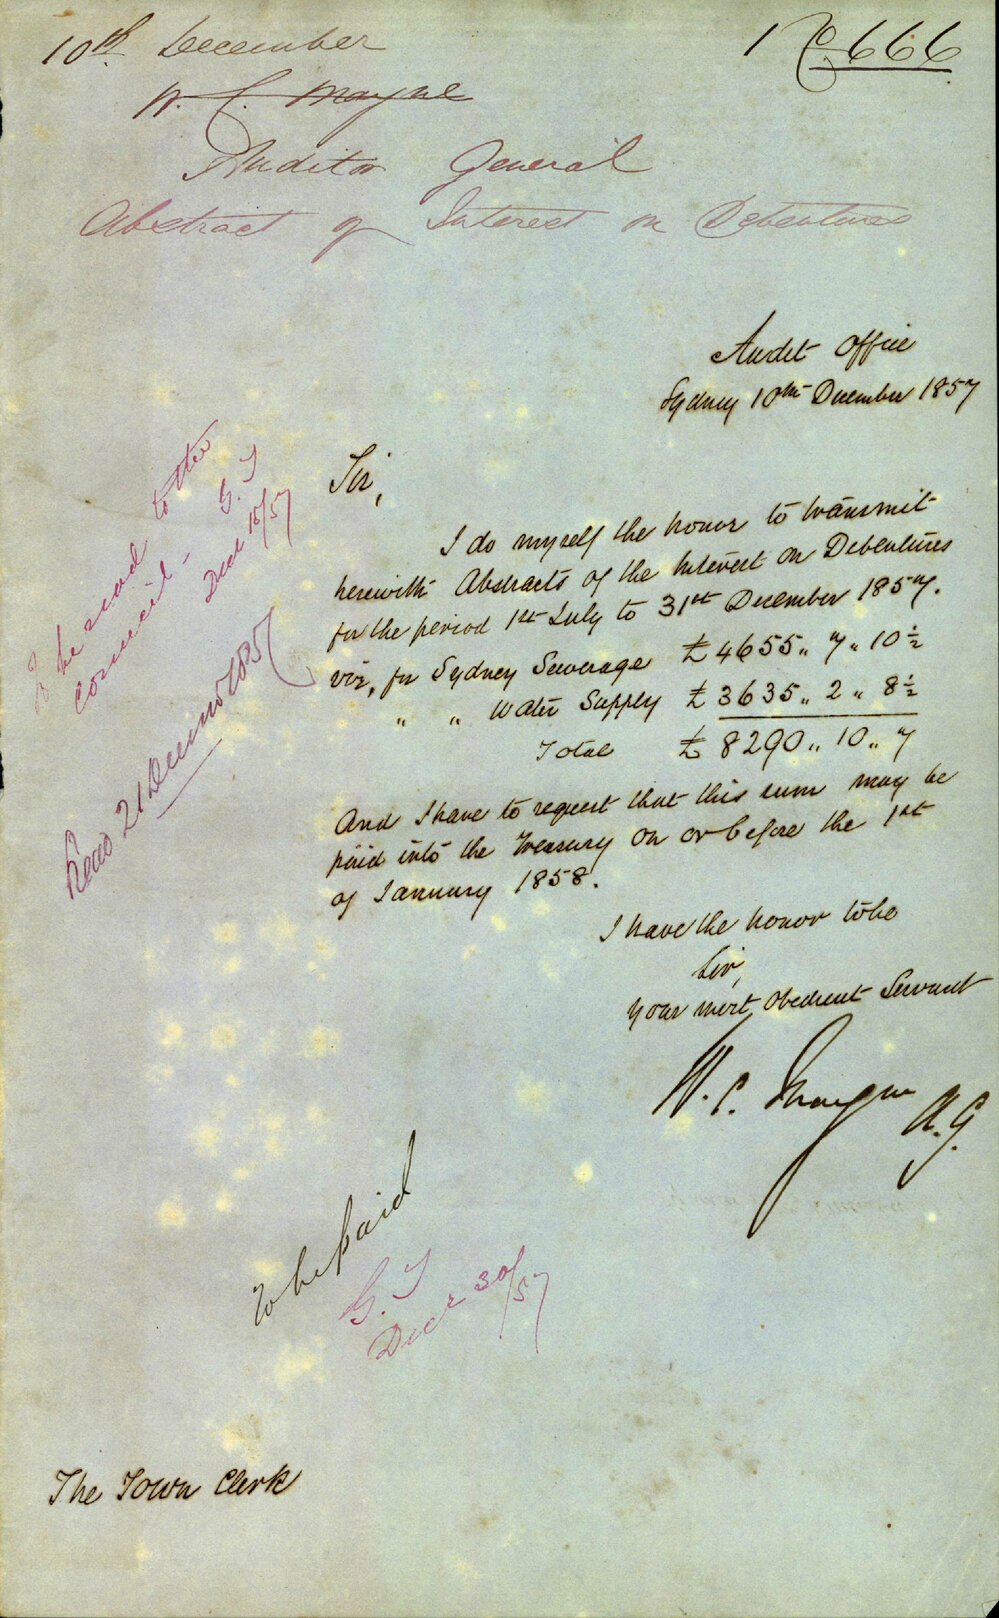 10th December
No. 666
W. C. Mayne
Auditor General
Abstract of Interest on Debentures
Audit Office
Sydney 10th December 1857
Sir,
I do myself the honor to transmit
herewith Abstracts of the Interest on Debentures
for the period 1st July to 31st December 1857.
viz, for Sydney Sewerage £4655 „ 7 „ 10 ½
„ „ Water Supply £3635 „ 2 „ 8 ½
Total £8290 „ 10 „ 7
And I have to request that this sum may be
paid into the Treasury on or before the 1st
of January 1858.
I have the honor to be
Sir,
Your most Obedient Servant
W. C. Mayne
A. G.
To be read to the
Council -
G. T
Decr 15/57
Read 21 December 1857
To be paid
G. T
Decr 30/57
The Town Clerk